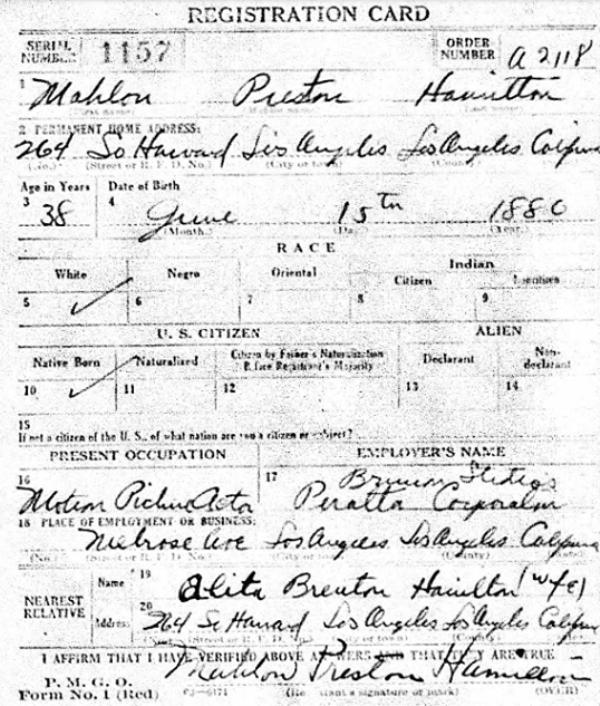 REGISTRATION CARD
SERIAL NUMBER 1157 ORDER NUMBER A 2118
1 Mahlon Preston Hamilton
(First name) (Middle name) (Last name)
2 PERMANENT HOME ADDRESS:
264 So Harvard Los Angeles Los Angeles California
(No.) (Street or R. F. D. No.) (City or town) (County)
Age in Years Date of Birth
3 38 4 June 15th 1880
(Month.) (Day.) (Year.)
RACE
White Negro Oriental Indian
Citizen
5 6 7 8 9
U. S. CITIZEN ALIEN
Native Born Naturalized Citizen by Father's Naturalization Before Registrant's Majority Declarant Non-declarant
10 11 12 13 14
15
If not a citizen of the U. S., of what nation are you a citizen or subject?
PRESENT OCCUPATION EMPLOYER'S NAME
16 17 Brunton Studios
Motion Picture Actor Peralta Corporation
18 PLACE OF EMPLOYMENT OR BUSINESS:
Melrose Ave Los Angeles Los Angeles California
(No.) (Street or R. F. D. No.) (City or town) (County) (State)
NEAREST RELATIVE
Name 19 Aleta Brenton Hamilton (wife)
Address 20 264 So Harvard Los Angeles Los Angeles California
(No.) (Street or R. F. D. No.) (City or town) (County)
I AFFIRM THAT I HAVE VERIFIED ABOVE ANSWERS AND THAT THEY ARE TRUE
P. M. G. O.
Form No. 1 (Red) Mahlon Preston Hamilton
(Registrant's signature or mark) (OVER)